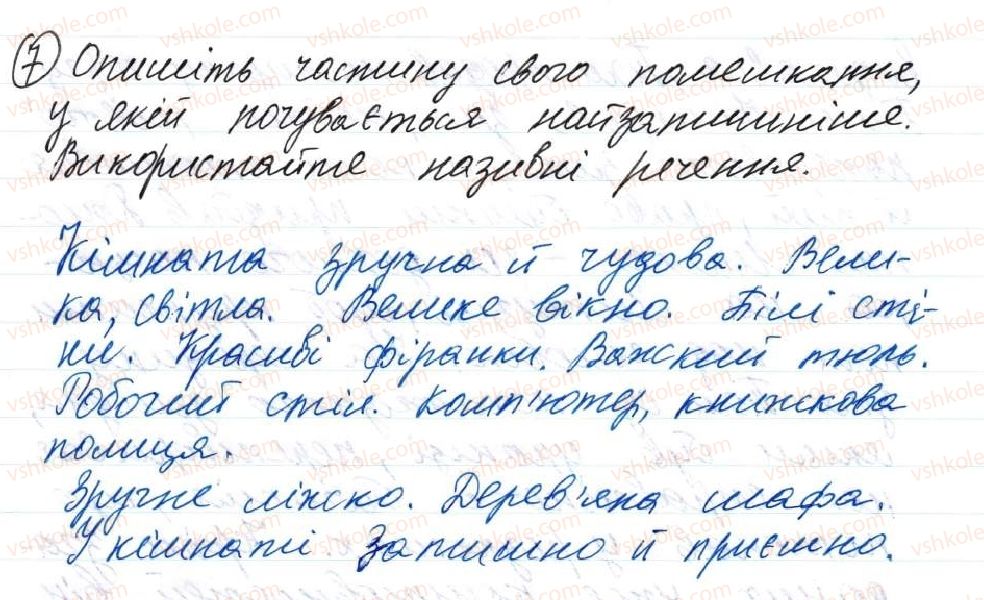 7 Опишіть частину свого помешкання,
у якій почувається найзатишніше.
Використайте називні речення.
Кімната зручна й чудова. Вели-
ка, світла. Велике вікно. Білі сті-
ни. Красиві фіранки. Важкий тюль.
Робочий стіл. Комп'ютер, книжкова
полиця.
Зручне ліжко. Дерев'яна шафа.
У кімнаті затишно й приємно.